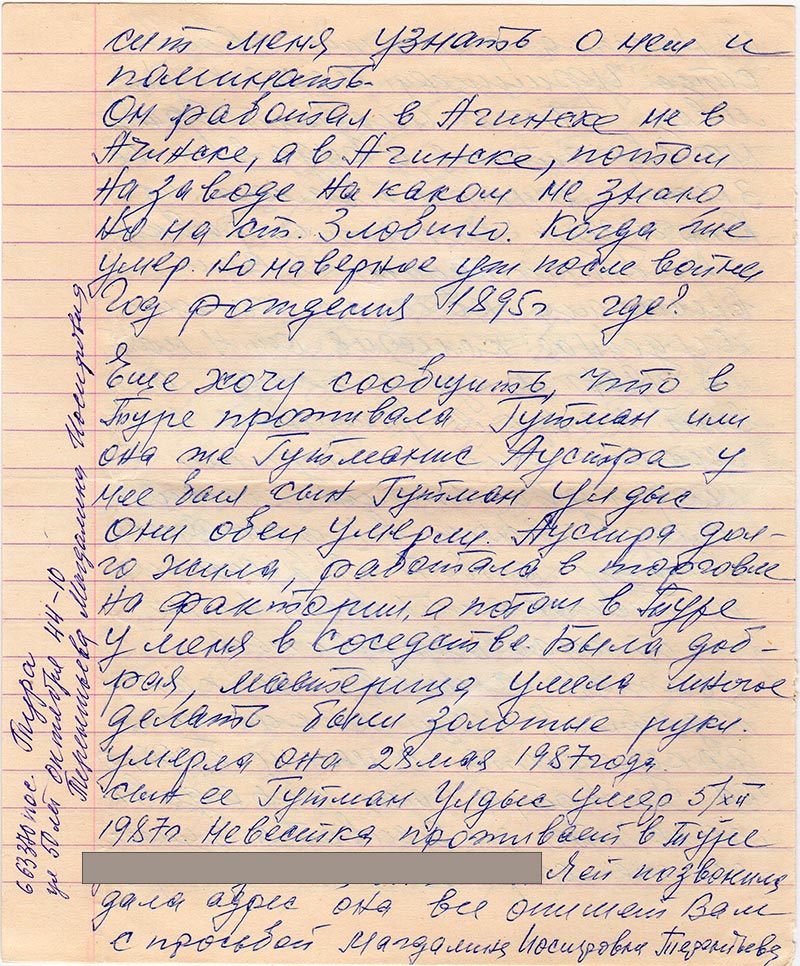 сит меня узнать о нем и
поминать.
Он работал в Агинске не в
Ачинске, а в Агинске, потом
на заводе на каком не знаю
но на ст. Злобино. Когда же
умер. но наверное уж после войны
Год рождения 1895г где?
Еще хочу сообщить, что в
Туре проживала Гутман или
она же Гутманис Аустра у
нее был сын Гутман Улдыс
они обеи умерли. Аустра дол-
го жила, работала в торговле
на фактории, а потом в Туре
у меня в соседстве. Была доб-
рая, мастерица умела многое
делать были золотые руки.
умерла она 28 мая 1987 года.
сын ее Гутман Улдыс умер 5/XII
1987г. Невестка проживает в Туре
Я ей позвонила
дала адрес она все опишет Вам
с просьбой Магдалина Иосифовна Терентьева
пос. Тура
ул 50 лет октября 44-10
Терентьева Магдалина Иосифовна